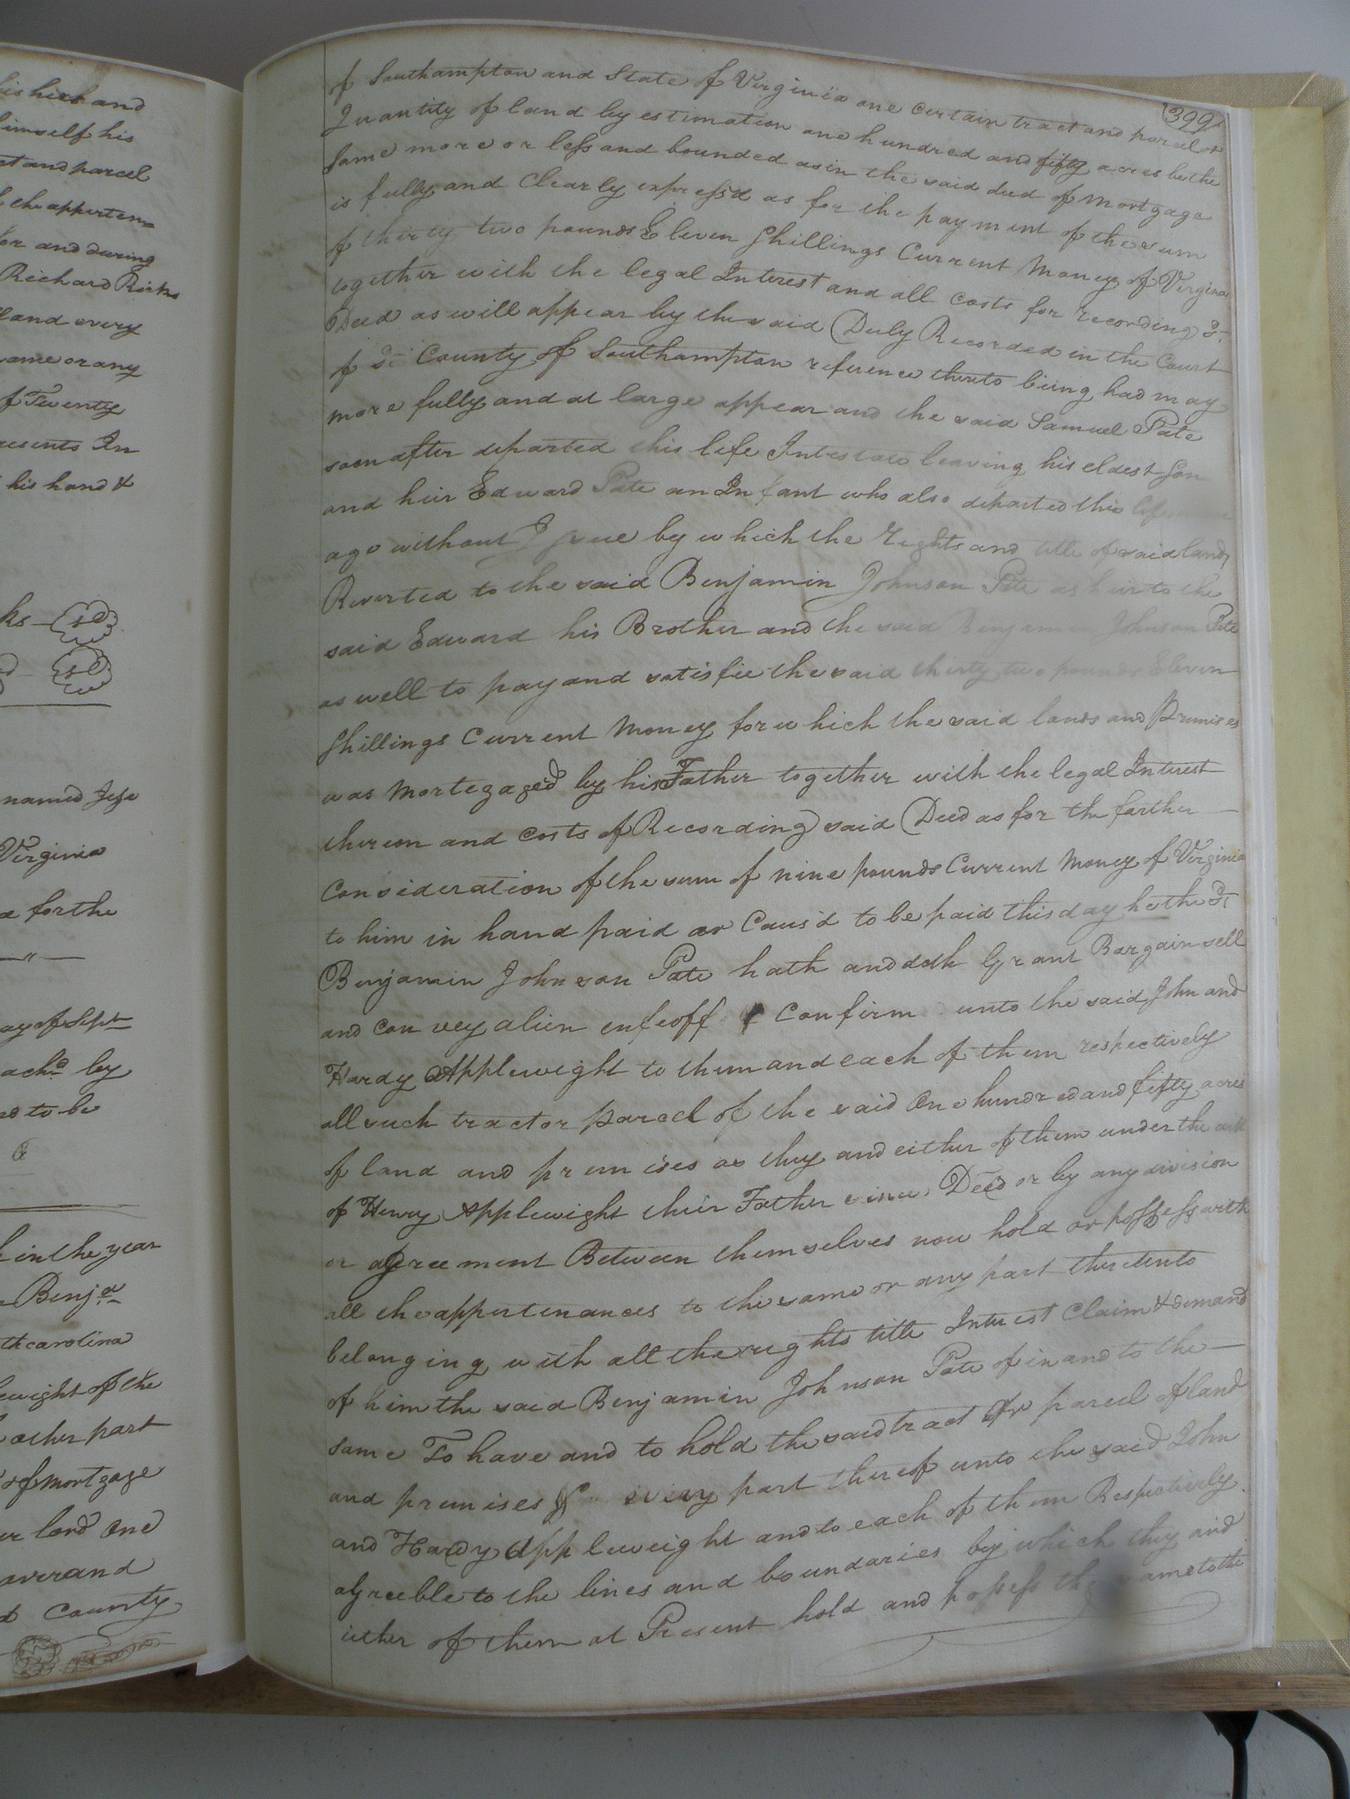 his heirs and
himself his
ct and parcel
the appurten=
for and during
Richard Ricks
and every
same or any
of Twenty
presents In
his hand &
ks
named Jesse
Virginia
for the
ay of Sept
achd by
ed to be
in the year
Benja
th carolina
leweight of the
other part
of mortgage
lord One
averand
County
399
of Southampton and State of Virginia one certain tract and parcel or
Quantity of land by estimation one hundred and fifty acres be the
same more or less and bounded as in the said deed of Mortgage
is fully and Clearly express'd as for the payment of the sum
of thirty two pounds Eleven Shillings Current Money of Virginia
together with the legal Interest and all costs for recording sd
Deed as will appear by the said Duly Recorded in the Court
of sd County of Southampton reference thereto being had may
more fully and at large appear and the said Samuel Pate
soon after departed this life Intestate leaving his eldest Son
and heir Edward Pate an Infant who also departed this life
ago without Issue by which the Rights and title of said lands
Reverted to the said Benjamin Johnson Pate as heir to the
said Edward his Brother and the said Benjamin Johnson Pate
as well to pay and satisfie the said thirty two pounds Eleven
Shillings Current Money for which the said lands and Premises
was Mortgaged by his Father together with the legal Interest
thereon and costs of Recording said Deed as for the farther
Consideration of the sum of nine pounds Current Money of Virginia
to him in hand paid or Caus'd to be paid this day he the sd
Benjamin Johnson Pate hath and doth Grant Bargain sell
and convey alien enfeoff & Confirm unto the said John and
Hardy Appleweight to them and each of them respectively
all such tract or parcel of the said One hundred and fifty acres
of land and premises as they and either of them under the
of Henry Appleweight their Father Deed or by any division
or agreement Between themselves now hold or possess with
all the appurtenances to the same or any part thereunto
belonging with all the rights title Interest Claim & demand
of him the said Benjamin Johnson Pate of in and to the
same To have and to hold the said tract or parcel of land
and premises every part thereof unto the said John
and Hardy Appleweight and to each of them Respectively
agreeble to the lines and boundaries by which they and
either of them at Present hold and possess the same to the